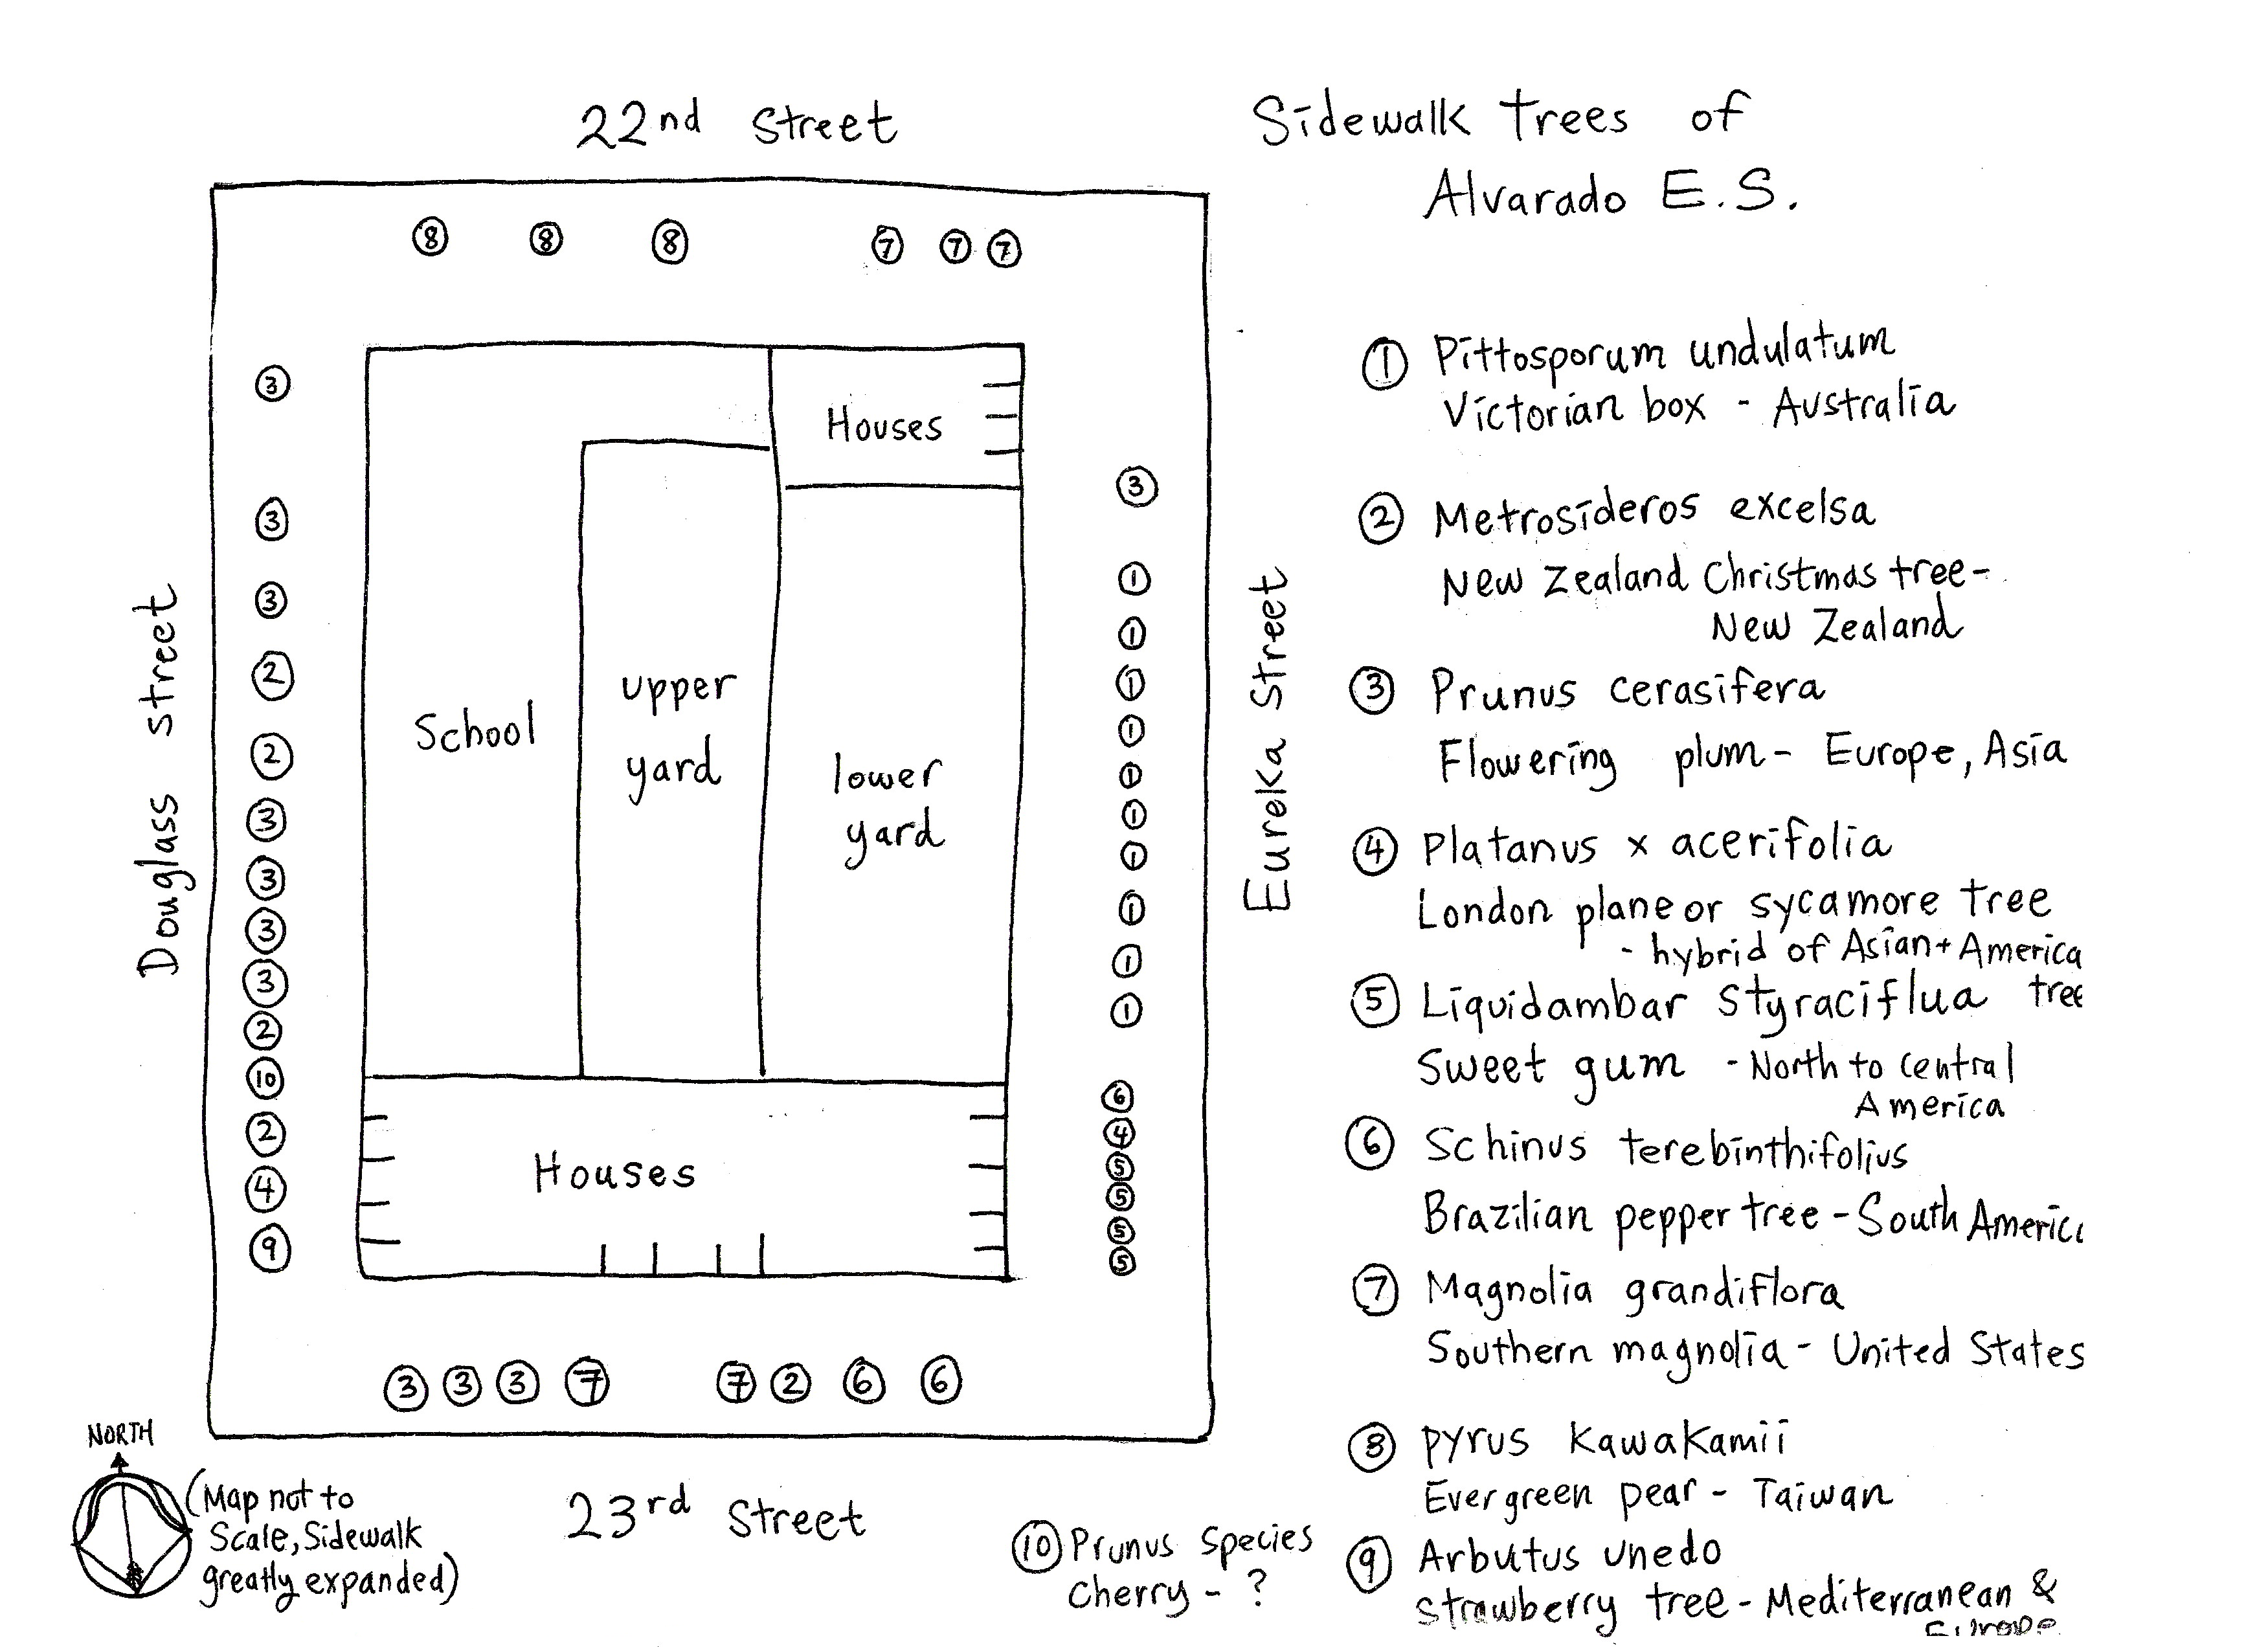 22nd Street
Sidewalk Trees of
Alvarado E.S.
8 8 8 7 7 7
Douglass street
3
3
3
2
2
3
3
3
3
2
10
2
4
9
School
upper
yard
Houses
lower
yard
Houses
3
1
1
1
1
1
1
1
1
1
1
6
4
5
5
5
5
Eureka Street
3 3 3 7 7 2 6 6
23rd Street
NORTH
(Map not to
Scale, Sidewalk
greatly expanded)
1 Pittosporum undulatum
Victorian box - Australia
2 Metrosideros excelsa
New Zealand Christmas tree-
New Zealand
3 Prunus cerasifera
Flowering plum - Europe, Asia
4 Platanus x acerifolia
London plane or sycamore tree
- hybrid of Asian + America
tree
5 Liquidambar styraciflua
Sweet gum - North to central
America
6 Schinus terebinthifolius
Brazilian pepper tree - South Americ
7 Magnolia grandiflora
Southern magnolia - United States
8 pyrus kawakamii
Evergreen pear - Taiwan
9 Arbutus unedo
strawberry tree - Mediterranean &
Europe
10 Prunus species
cherry - ?